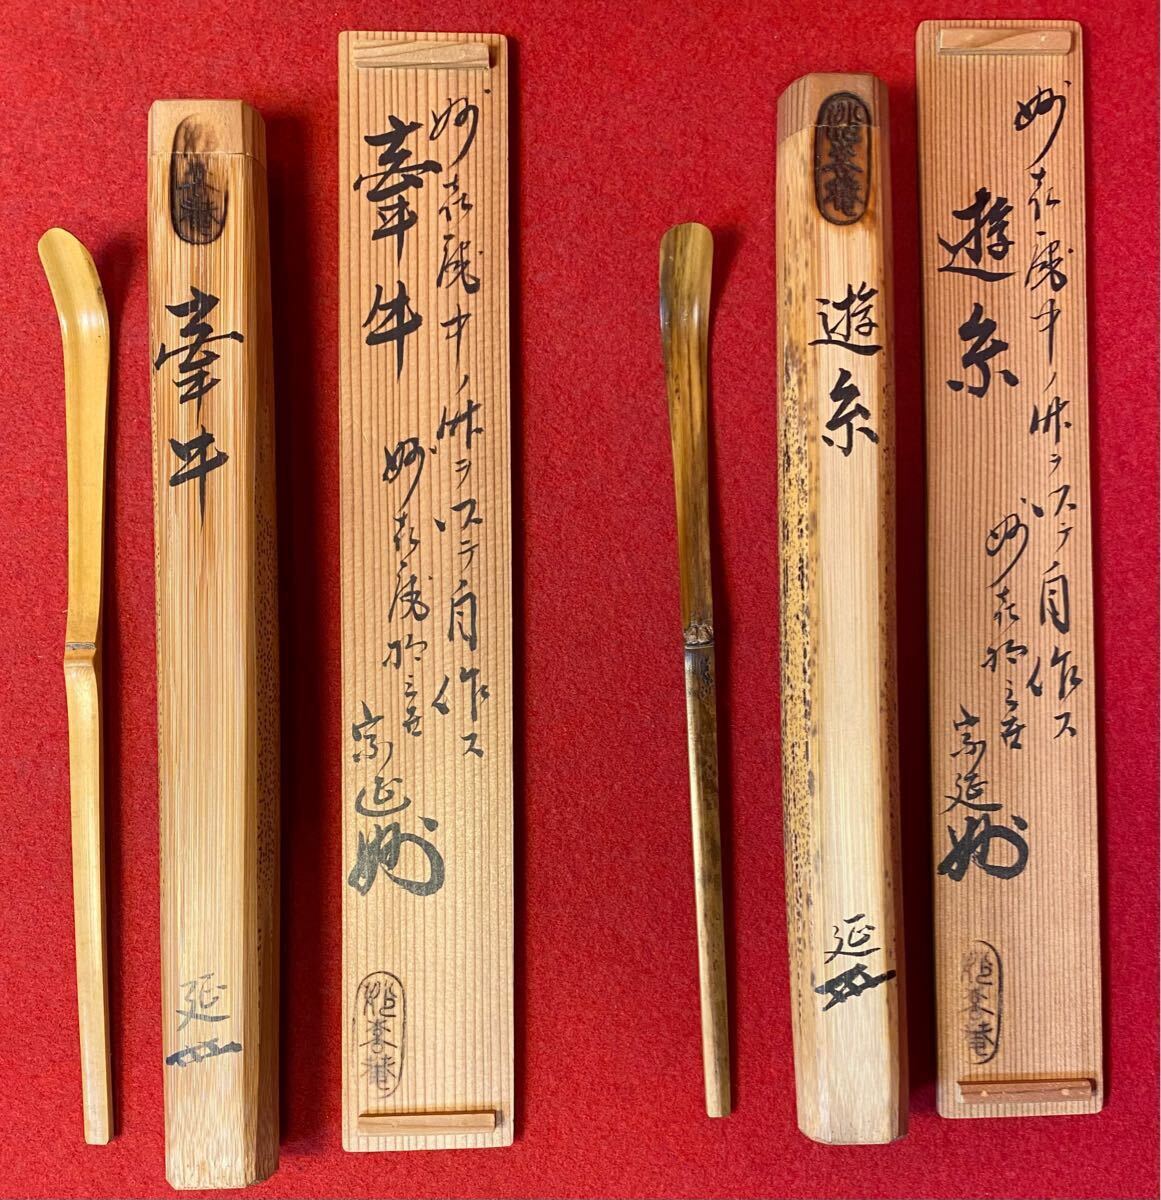 牽牛
延
妙喜庵中ノ竹ヲ以テ自作ス
牽牛
妙喜庵
宗延
妙喜庵
遊糸
延
妙喜庵
妙喜庵中ノ竹ヲ以テ自作ス
遊糸
妙喜
宗延
妙喜庵